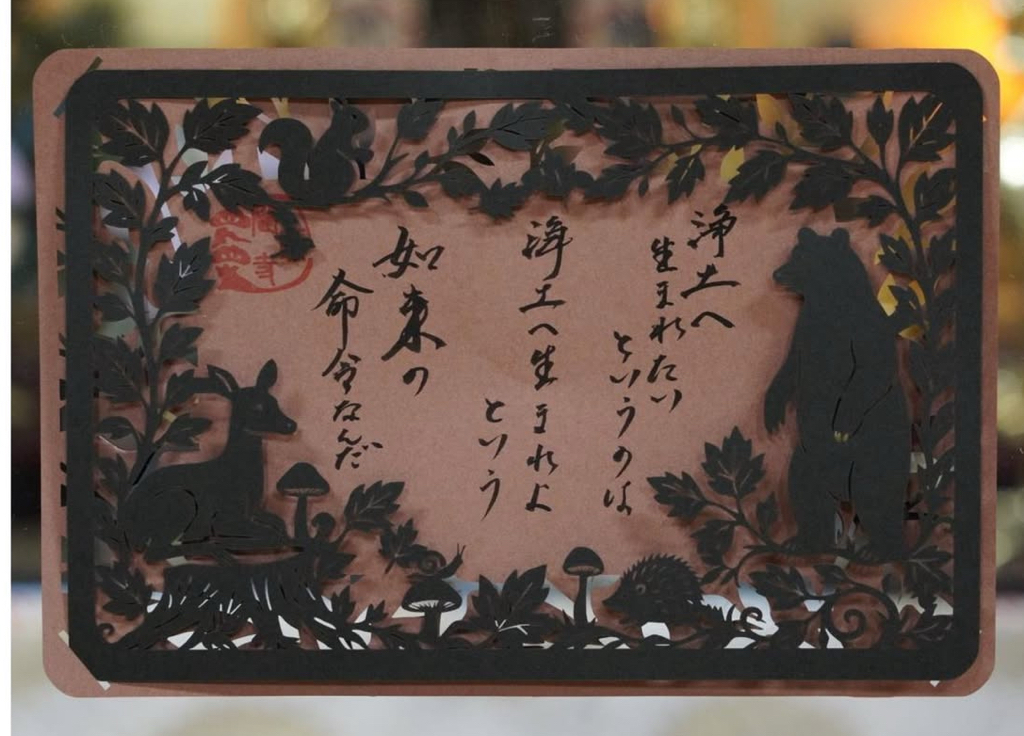 浄土へ
生まれたい
というのは
浄土へ生まれよ
という
如来の
命令なんだ